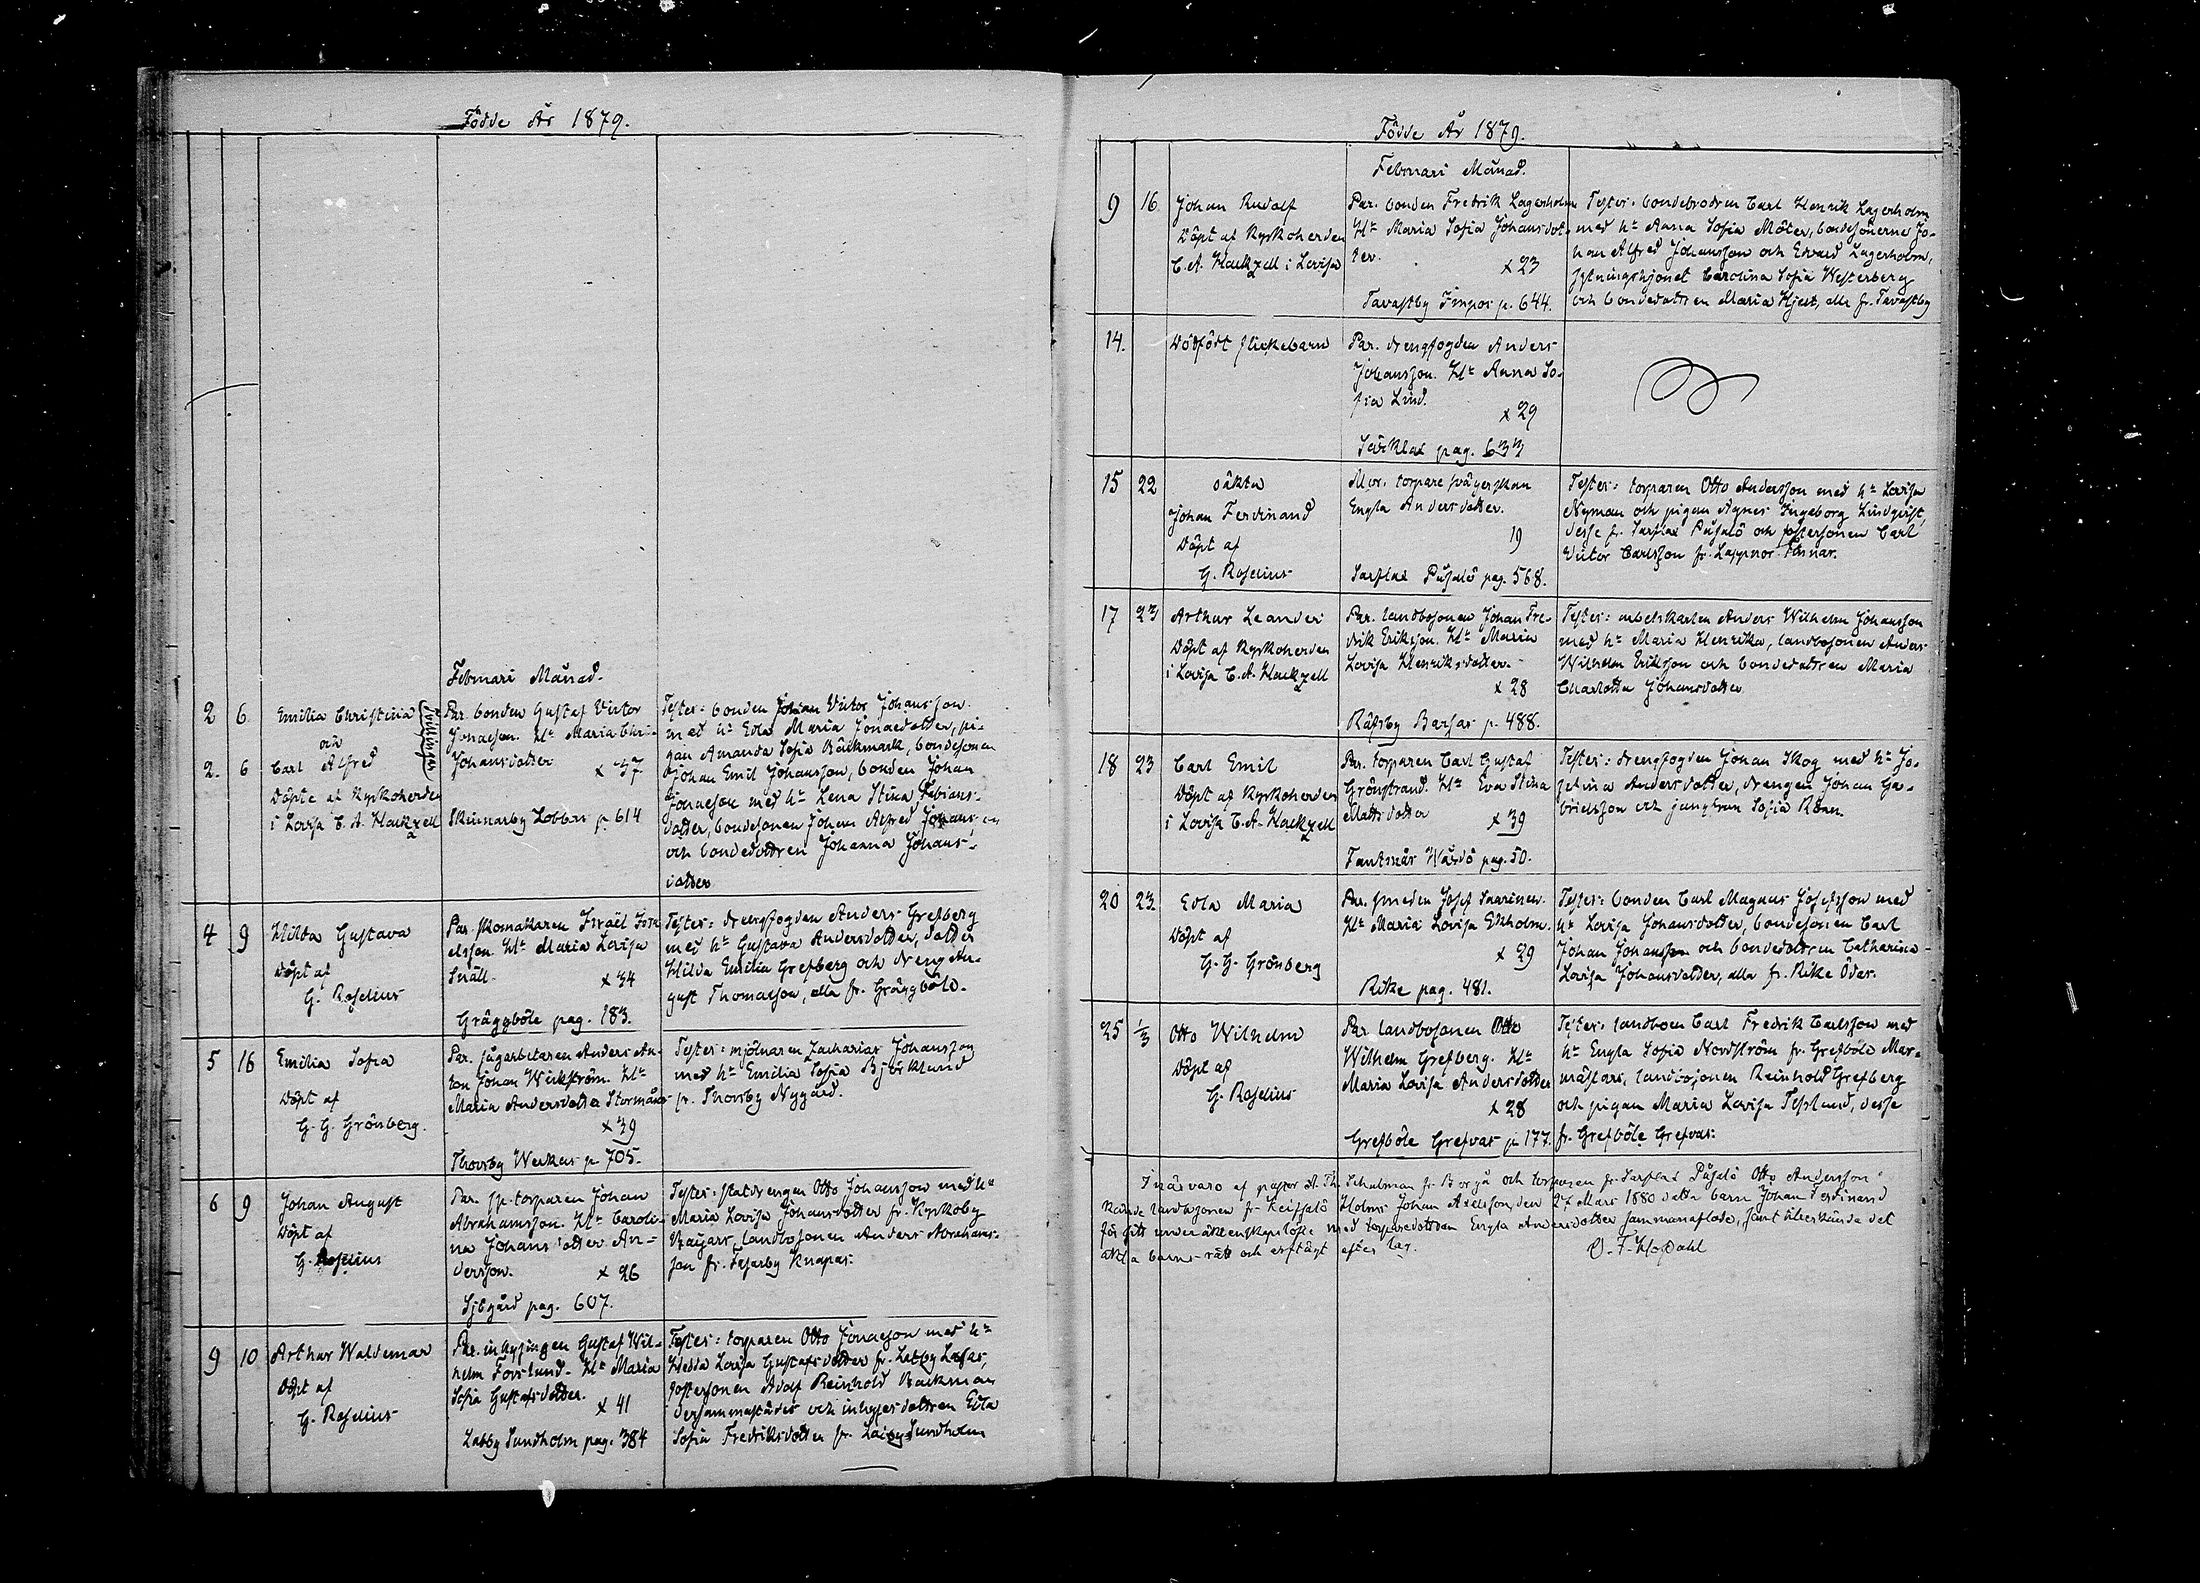 Födde År 1879.
Februari Månad.
2 6 Emilia Christina
och
2. 6 Carl Alfred
Tvillingar
Döpte af Kyrkoherden
i Lovisa C. A. Hackzell
Par. bonden Gustaf Victor
Jonasson. H:u Maria Chri-
Johansdotter x 37
Skinnarby Lobbas p 614
Tester: bonden Johan Victor Johansson
med h:u Edla Maria Jonaedotter, pi-
gan Amanda Sofia Bäckmark, bondesonen
Johan Emil Johansson, bonden Johan
Jonaeson med h:u Lena Stina Fabians-
dotter, bondesonen Johan Alfred Johansson
och bondedottren Johanna Johans-
dotter
4 9 Hilda Gustava
Döpt af
G. Roselius
Par. skomakaren Israël Isra-
elsson. H:u Maria Lovisa
Snäll. x 34
Gräggböle pag. 183.
Tester: drengfogden Anders Grefberg
med h:u Gustava Andersdotter, dotter
Hilda Emilia Grefberg och dreng Au-
gust Thomasson, alla fr. Gräggböle.
5 16 Emilia Sofia
Döpt af
G. G. Grönberg.
Par. sågarbetaren Anders An-
ton Johan Wickström. H:u
Maria Andersdotter Stormåns
x 39
Thorsby Werkas p 705.
Tester: mjölnaren Zacharias Johansson
med h:u Emilia Sofia Björklund
fr. Thorsby Nygård.
6 9 Johan August
Döpt af
G. Roselius
Par. sp. torparen Johan
Abrahamsson. H:u Caroli-
na Johansdotter An-
dersson. x 26
Sjögård pag. 607.
Tester: statdrengen Otto Johansson med h:u
Maria Lovisa Johansdotter fr. Kyrkoby
Baijars, landbosonen Anders Abrahams-
son fr. Tesarby Knapas.
9 10 Arthur Waldemar
Döpt af
G. Roselius
Par. inhysingen Gustaf Wil-
helm Forslund. H:u Maria
Sofia Gustafsdotter.
x 41
Labby Sundholm pag. 384
Tester: torparen Otto Jonasson med h:u
Hedda Lovisa Gustafsdotter fr. Labby Lasas,
fostersonen Adolf Reinhold Backman
dersammastädes och inhysesdottren Edla
Sofia Fredriksdotter fr. Labby Sundholm
Födde År 1879.
Februari Månad.
9 16 Johan Rudolf
Döpt af Kyrkoherden
C. A. Hackzell i Lovisa
Par. bonden Fredrik Lagerholm
H:u Maria Sofia Johansdot-
ter. x 23
Tavastby Impos p. 644.
Tester: bondebrodren Carl Henrik Lagerholm
med h:u Anna Sofia Möter, bondesönerne Jo-
han Alfred Johansson och Edvard Lagerholm,
sytningshjonet Carolina Sofia Westerberg
och bondedottren Maria Hjert, alla fr. Tavastby
14. Dödfödt flickebarn
Par. drengfogden Anders
Johansson. H:u Anna So-
fia Lind.
x 29
Särklax pag. 633
15 22 oäkta
Johan Ferdinand
Döpt af
G. Roselius
Mor. torpare svägerskan
Engla Andersdotter.
19
Sarflax Påsalö pag. 568.
Tester: torparen Otto Andersson med h:u Lovisa
Nyman och pigan Agnes Ingeborg Lindqvist,
desse fr. Sarflax Påsalö och fostersonen Carl
Victor Carlsson fr. Lappnor Finnas.
17 23 Arthur Leander
Döpt af Kyrkoherden
i Lovisa C. A. Hackzell
Par. landbosonen Johan Fre-
drik Eriksson. H:u Maria
Lovisa Henriksdotter.
x 28
Räfsby Barsas p. 488.
Tester: arbetskarlen Anders Wilhelm Johansson
med h:u Maria Henrika, landbosonen Anders
Wilhelm Eriksson och bondedottren Maria
Charlotta Johansdotter
18 23 Carl Emil
Döpt af Kyrkoherden
i Lovisa C. A. Hackzell
Par. torparen Carl Gustaf
Grönstrand. H:u Eva Stina
Mattsdotter x 39
Tantsnäs Wåtsö pag. 50.
Tester: drengfogden Johan Skog med h:u Jo-
sefina Andersdotter, drengen Johan Ga-
brielsson och jungfrun Sofia Röen.
20 23. Edla Maria
Döpt af
G. G. Grönberg
Par. smeden Josef Saarinen.
H:u Maria Lovisa Ekholm.
x 29
Rike pag. 481.
Tester: bonden Carl Magnus Josefsson med
h:u Lovisa Johansdotter, bondesonen Carl
Johan Johansson och bondedottren Catharina
Lovisa Johansdotter, alla fr. Rike Öder.
25 1/3 Otto Wilhelm
Döpt af
G. Roselius
Par landbosonen Otto
Wilhelm Grefberg. H:u
Maria Lovisa Andersdotter
x 28
Grefböle Grefvas p 177.
Tester: landboen Carl Fredrik Carlsson med
h:u Engla Sofia Nordström fr. Grefböle Mar-
mästars, landbosonen Reinhold Grefberg
och pigan Maria Lovisa Teslund, desse
fr. Grefböle Grefvas.
I närvaro af pastor A. Th. Schulman fr. Borgå och torparen fr. Sarflax Påsalö Otto Andersson
kände landbosonen fr. Keitsalö Holms Johan Axelsson, den 27 Mars 1880 detta barn Johan Ferdinand
för sitt under äktenskapslöfte med torparedottren Engla Andersdotter sammanaflade, samt tillerkände det
äkta barns rätt och arftägt efter lag. O. F. Hordahl